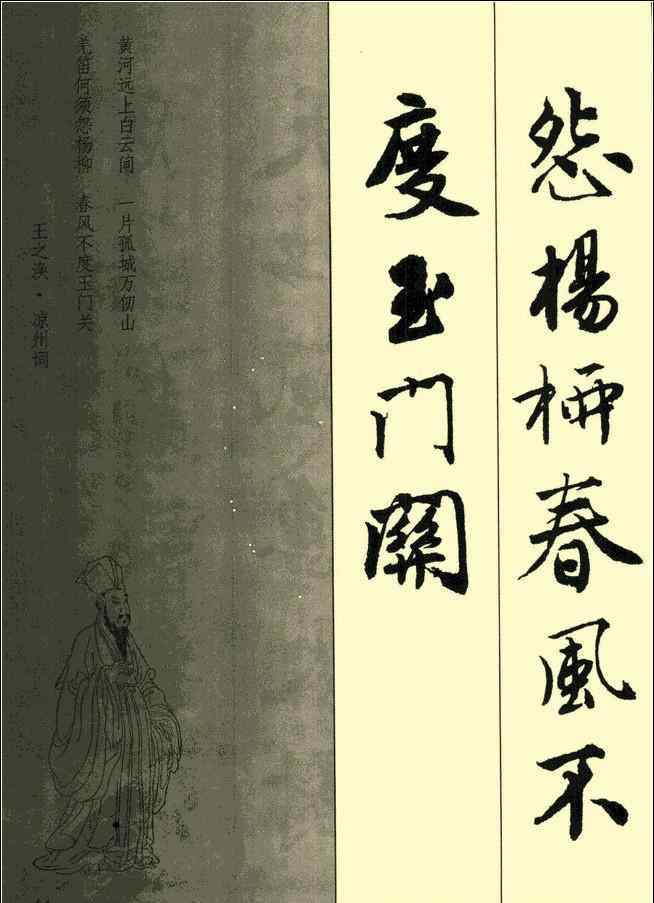 怨楊柳春風不
度玉門關
黄河远上白云间 一片孤城万仞山
羌笛何须怨杨柳 春风不度玉门关
王之涣·凉州词